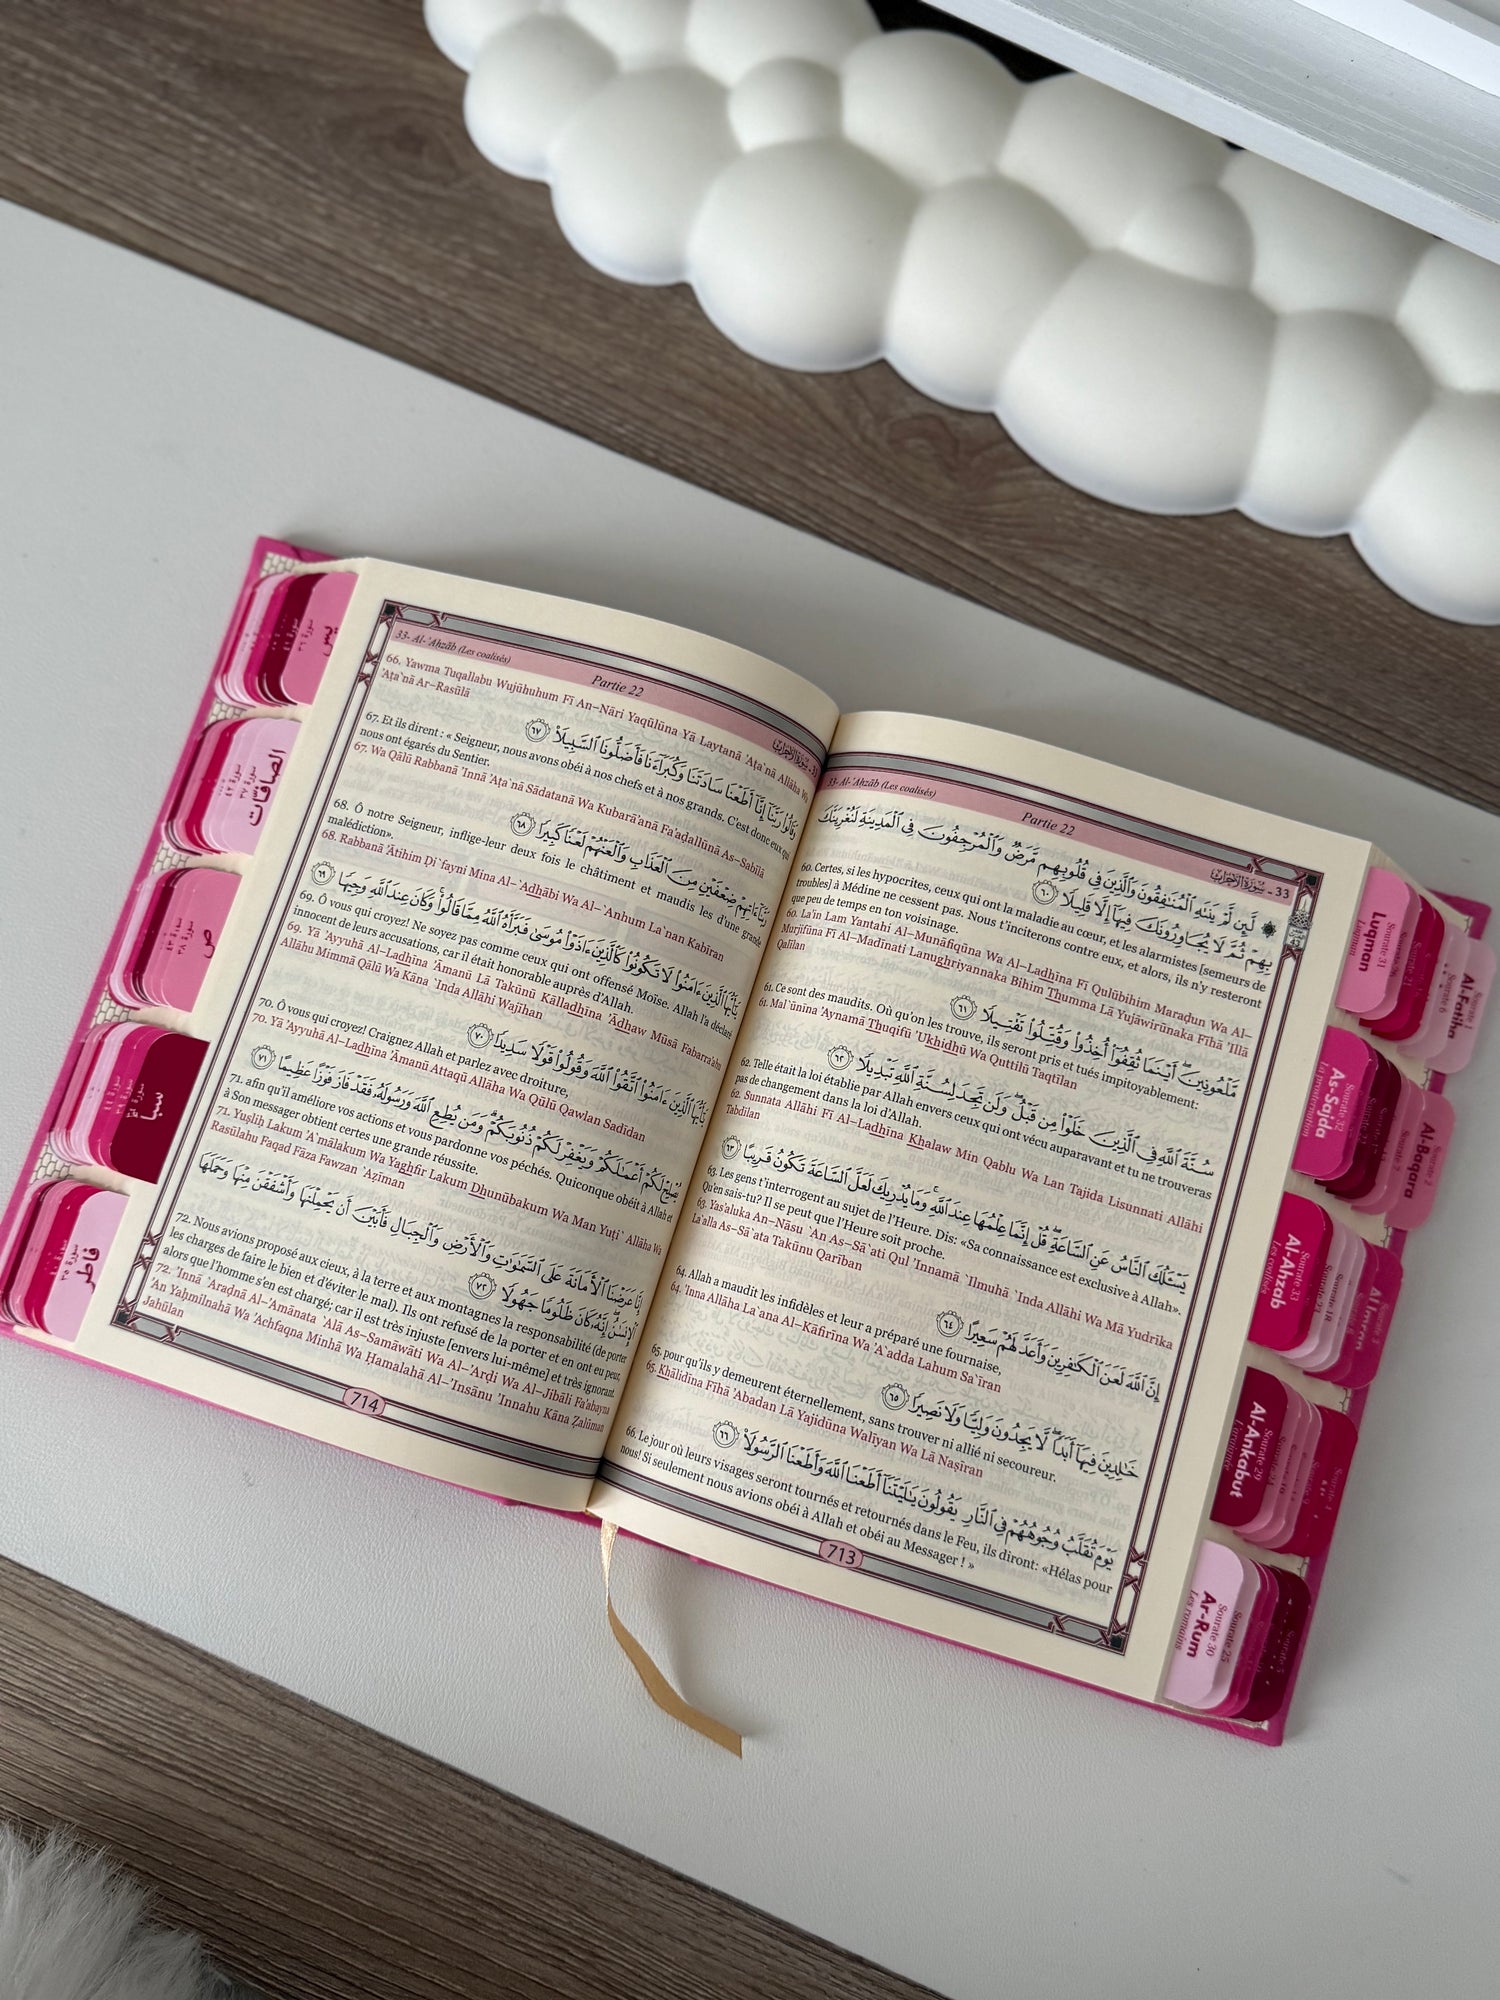 33- Al-'Aḥzāb (Les coalisés)
Partie 22
33 - سُورَةُ الأَحْزَابِ
لَّئِن لَّمْ يَنتَهِ ٱلْمُنَـٰفِقُونَ وَٱلَّذِينَ فِى قُلُوبِهِم مَّرَضٌ وَٱلْمُرْجِفُونَ فِى ٱلْمَدِينَةِ لَنُغْرِيَنَّكَ
بِهِمْ ثُمَّ لَا يُجَاوِرُونَكَ فِيهَآ إِلَّا قَلِيلًا ٦٠
60. Certes, si les hypocrites, ceux qui ont la maladie au cœur, et les alarmistes [semeurs de
troubles] à Médine ne cessent pas. Nous t'inciterons contre eux, et alors, ils n'y resteront
que peu de temps en ton voisinage.
60. La'in Lam Yantahi Al–Munāfiqūna Wa Al–Ladhīna Fī Qulūbihim Maraḍun Wa Al–
Murjifūna Fī Al–Madīnati Lanughriyannaka Bihim Thumma Lā Yujāwirūnaka Fīhā 'Illā
Qalīlan
مَّلْعُونِينَ أَيْنَمَا ثُقِفُوٓا۟ أُخِذُوا۟ وَقُتِّلُوا۟ تَقْتِيلًا ٦١
61. Ce sont des maudits. Où qu'on les trouve, ils seront pris et tués impitoyablement:
61. Mal`ūnīna 'Aynamā Thuqifū 'Ukhidhū Wa Quttilū Taqtīlan
سُنَّةَ ٱللَّهِ فِى ٱلَّذِينَ خَلَوْا۟ مِن قَبْلُ وَلَن تَجِدَ لِسُنَّةِ ٱللَّهِ تَبْدِيلًا ٦٢
62. Telle était la loi établie par Allah envers ceux qui ont vécu auparavant et tu ne trouveras
pas de changement dans la loi d'Allah.
62. Sunnata Allāhi Fī Al–Ladhīna Khalaw Min Qablu Wa Lan Tajida Lisunnati Allāhi
Tabdīlan
يَسْـَٔلُكَ ٱلنَّاسُ عَنِ ٱلسَّاعَةِ قُلْ إِنَّمَا عِلْمُهَا عِندَ ٱللَّهِ وَمَا يُدْرِيكَ لَعَلَّ ٱلسَّاعَةَ تَكُونُ قَرِيبًا ٦٣
63. Les gens t'interrogent au sujet de l'Heure. Dis: «Sa connaissance est exclusive à Allah».
Qu'en sais-tu? Il se peut que l'Heure soit proche.
63. Yas'aluka An–Nāsu `An As–Sā`ati Qul 'Innamā `Ilmuhā `Inda Allāhi Wa Mā Yudrīka
La`alla As–Sā`ata Takūnu Qarīban
إِنَّ ٱللَّهَ لَعَنَ ٱلْكَـٰفِرِينَ وَأَعَدَّ لَهُمْ سَعِيرًا ٦٤
64. Allah a maudit les infidèles et leur a préparé une fournaise,
64. 'Inna Allāha La`ana Al–Kāfirīna Wa 'A`adda Lahum Sa`īran
خَـٰلِدِينَ فِيهَآ أَبَدًا لَّا يَجِدُونَ وَلِيًّا وَلَا نَصِيرًا ٦٥
65. pour qu'ils y demeurent éternellement, sans trouver ni allié ni secoureur.
65. Khālidīna Fīhā 'Abadan Lā Yajidūna Walīyan Wa Lā Naṣīran
يَوْمَ تُقَلَّبُ وُجُوهُهُمْ فِى ٱلنَّارِ يَقُولُونَ يَـٰلَيْتَنَآ أَطَعْنَا ٱللَّهَ وَأَطَعْنَا ٱلرَّسُولَا۠ ٦٦
66. Le jour où leurs visages seront tournés et retournés dans le Feu, ils diront: «Hélas pour
nous! Si seulement nous avions obéi à Allah et obéi au Messager ! »
713
33- Al-'Aḥzāb (Les coalisés)
Partie 22
33 - سُورَةُ الأَحْزَابِ
66. Yawma Tuqallabu Wujūhuhum Fī An–Nāri Yaqūlūna Yā Laytanā 'Aṭa`nā Allāha Wa
'Aṭa`nā Ar–Rasūlā
وَقَالُوا۟ رَبَّنَآ إِنَّآ أَطَعْنَا سَادَتَنَا وَكُبَرَآءَنَا فَأَضَلُّونَا ٱلسَّبِيلَا۠ ٦٧
67. Et ils dirent : « Seigneur, nous avons obéi à nos chefs et à nos grands. C'est donc eux qui
nous ont égarés du Sentier.
67. Wa Qālū Rabbanā 'Innā 'Aṭa`nā Sādatanā Wa Kubarā'anā Fa'aḍallūnā As–Sabīlā
رَبَّنَآ ءَاتِهِمْ ضِعْفَيْنِ مِنَ ٱلْعَذَابِ وَٱلْعَنْهُمْ لَعْنًا كَبِيرًا ٦٨
68. Ô notre Seigneur, inflige-leur deux fois le châtiment et maudis les d'une grande
malédiction».
68. Rabbanā 'Ātihim Ḍi`fayni Mina Al–`Adhābi Wa Al–`Anhum La`nan Kabīran
يَـٰٓأَيُّهَا ٱلَّذِينَ ءَامَنُوا۟ لَا تَكُونُوا۟ كَٱلَّذِينَ ءَاذَوْا۟ مُوسَىٰ فَبَرَّأَهُ ٱللَّهُ مِمَّا قَالُوا۟ وَكَانَ عِندَ ٱللَّهِ وَجِيهًا ٦٩
69. Ô vous qui croyez! Ne soyez pas comme ceux qui ont offensé Moïse. Allah l'a déclaré
innocent de leurs accusations, car il était honorable auprès d'Allah.
69. Yā 'Ayyuhā Al–Ladhīna 'Āmanū Lā Takūnū Kālladhīna 'Ādhaw Mūsā Fabarra'ahu
Allāhu Mimmā Qālū Wa Kāna `Inda Allāhi Wajīhan
يَـٰٓأَيُّهَا ٱلَّذِينَ ءَامَنُوا۟ ٱتَّقُوا۟ ٱللَّهَ وَقُولُوا۟ قَوْلًا سَدِيدًا ٧٠
70. Ô vous qui croyez! Craignez Allah et parlez avec droiture,
70. Yā 'Ayyuhā Al–Ladhīna 'Āmanū Attaqū Allāha Wa Qūlū Qawlan Sadīdan
يُصْلِحْ لَكُمْ أَعْمَـٰلَكُمْ وَيَغْفِرْ لَكُمْ ذُنُوبَكُمْ وَمَن يُطِعِ ٱللَّهَ وَرَسُولَهُۥ فَقَدْ فَازَ فَوْزًا عَظِيمًا ٧١
71. afin qu'il améliore vos actions et vous pardonne vos péchés. Quiconque obéit à Allah et
à Son messager obtient certes une grande réussite.
71. Yuṣliḥ Lakum 'A`mālakum Wa Yaghfir Lakum Dhunūbakum Wa Man Yuṭi` Allāha Wa
Rasūlahu Faqad Fāza Fawzan `Aẓīman
إِنَّا عَرَضْنَا ٱلْأَمَانَةَ عَلَى ٱلسَّمَـٰوَٰتِ وَٱلْأَرْضِ وَٱلْجِبَالِ فَأَبَيْنَ أَن يَحْمِلْنَهَا وَأَشْفَقْنَ مِنْهَا وَحَمَلَهَا
ٱلْإِنسَـٰنُ إِنَّهُۥ كَانَ ظَلُومًا جَهُولًا ٧٢
72. Nous avions proposé aux cieux, à la terre et aux montagnes la responsabilité (de porter
les charges de faire le bien et d'éviter le mal). Ils ont refusé de la porter et en ont eu peur,
alors que l'homme s'en est chargé; car il est très injuste [envers lui-même] et très ignorant.
72. 'Innā `Araḍnā Al–'Amānata `Alá As–Samāwāti Wa Al–'Arḍi Wa Al–Jibāli Fa'abayna
'An Yaḥmilnahā Wa 'Achfaqna Minhā Wa Ḥamalahā Al–'Insānu 'Innahu Kāna Ẓalūman
Jahūlan
714
يس
سورة ٣٦
الصافات
سورة ٣٧
ص
سورة ٣٨
سبأ
سورة ٣٤
فاطر
سورة ٣٥
Luqman
Sourate 31
Luqman
As-Sajda
Sourate 32
La prosternation
Al-Ahzab
Sourate 33
Les coalisés
Al-Ankabut
Sourate 29
L'araignée
Ar-Rum
Sourate 30
Les romains
Al-Fatiha
Sourate 1
Al-Baqara
Sourate 2
Al Imran
Sourate 3